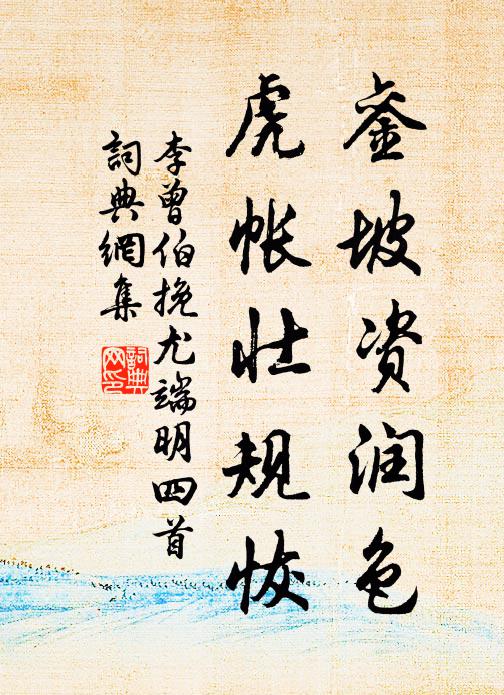 銮坡资润色
虎帐壮规恢
李曾伯挽尤端明四首
詞典網集
詞典
网印